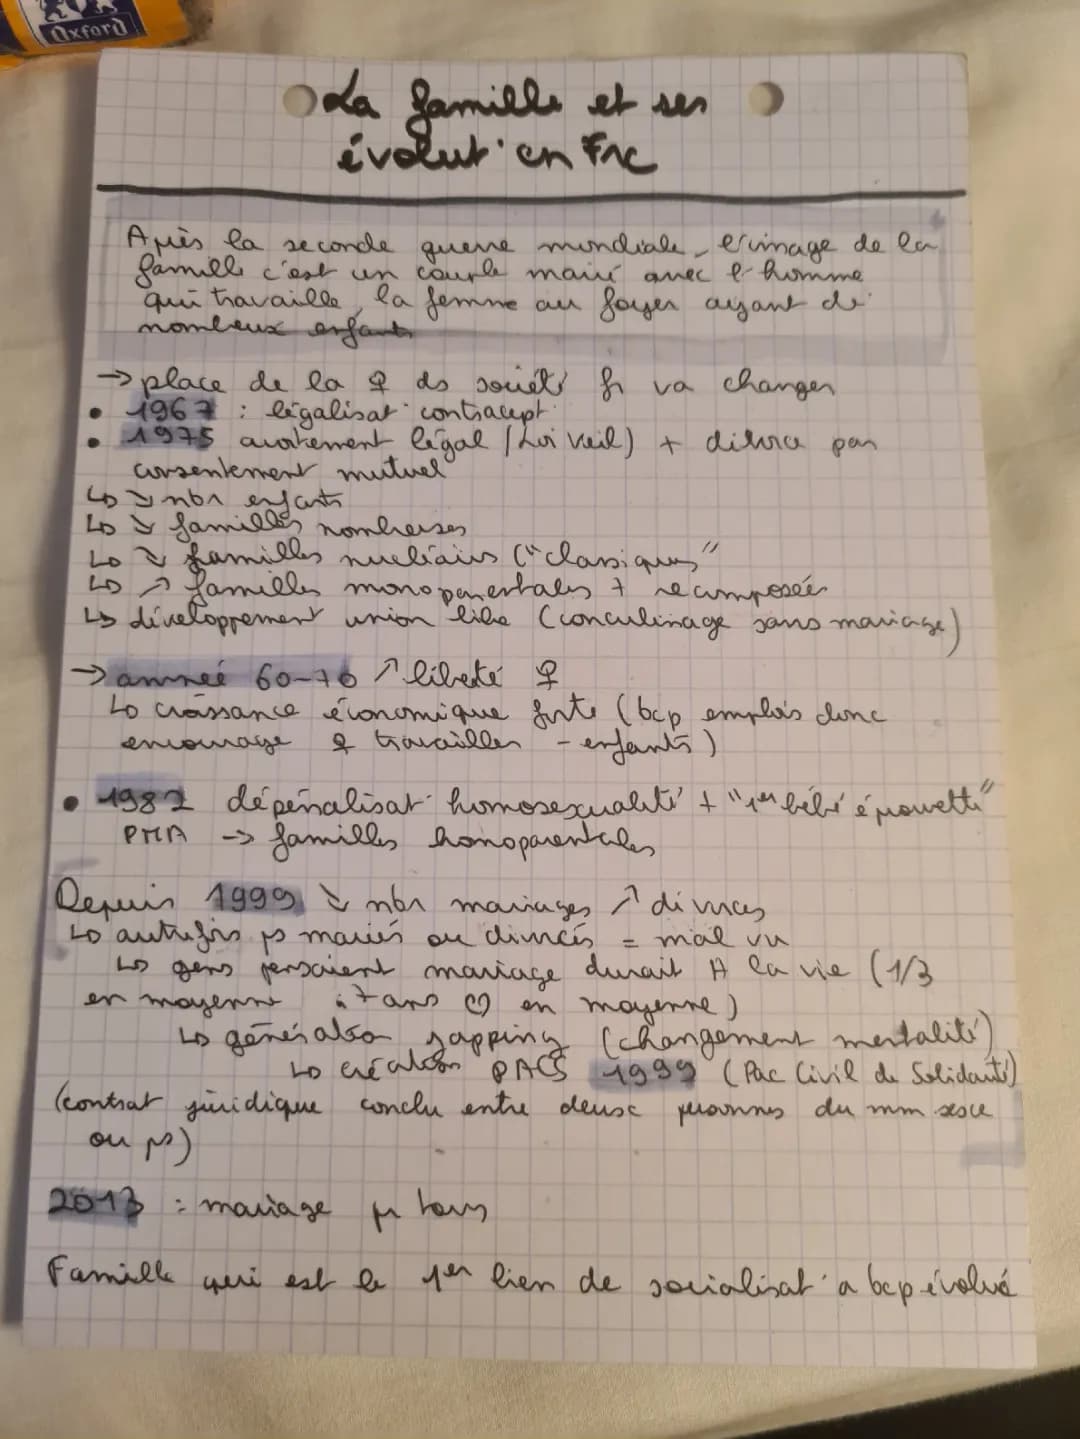 Oxford
La famille et ses
évolut° en Frc
Après la seconde guerre mondiale, l'image de la
famille c'est un couple marié avec l'homme
qui travaille, la femme au foyer ayant de
nombreux enfants
→ place de la ♀ ds société fr va changer
• 1967 : légalisat° contracept°
• 1975 avortement légal (Loi Veil) + divorce par
consentement mutuel
↳ ↘ nbr enfants
↳ ↘ familles nombreuses
↳ ↘ familles nucléaires ("classiques"
↳ ↗ familles monoparentales + recomposées
↳ développement union libre (conculinage sans mariage)
→ année 60-70 ↗ liberté ♀
↳ croissance économique forte (bcp emplois donc
encourage ♀ travailler - enfants)
• 1982 dépénalisat° homosexualité + "1er bébé éprouvette"
PMA → familles homoparentales
Depuis 1999 ↘ nbr mariages ↗ divorces
↳ autrefois ps mariés ou divorcés = mal vu
↳ gens pensaient mariage durait A la vie (1/3
en moyenne : 7 ans en moyenne)
↳ génération zapping (changement mentalité)
↳ création PACS 1999 (Pac Civil de Solidarité)
(contrat juridique conclu entre deux personnes du mm sexe
ou ps)
2013 : mariage pr tous
Famille qui est le 1er lien de socialisat° a bcp évolué